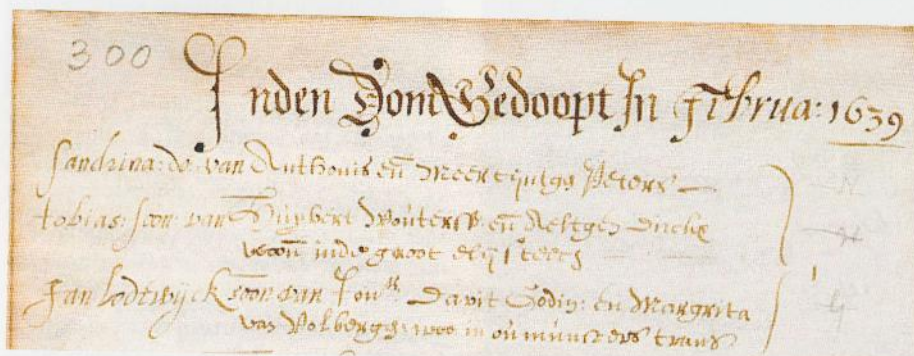 300
Inden Dom Gedoopt In Februa: 1639
Sandrina: do: van Anthonis en Meertyntgs Peters
tobias: soon van Huybert Wouterss en Aeltgen
woon inde groot
Jan Lodewijck soon van Jonr Davit Godin: en Margrita
van Wolberggh woo in oũ munsters trans